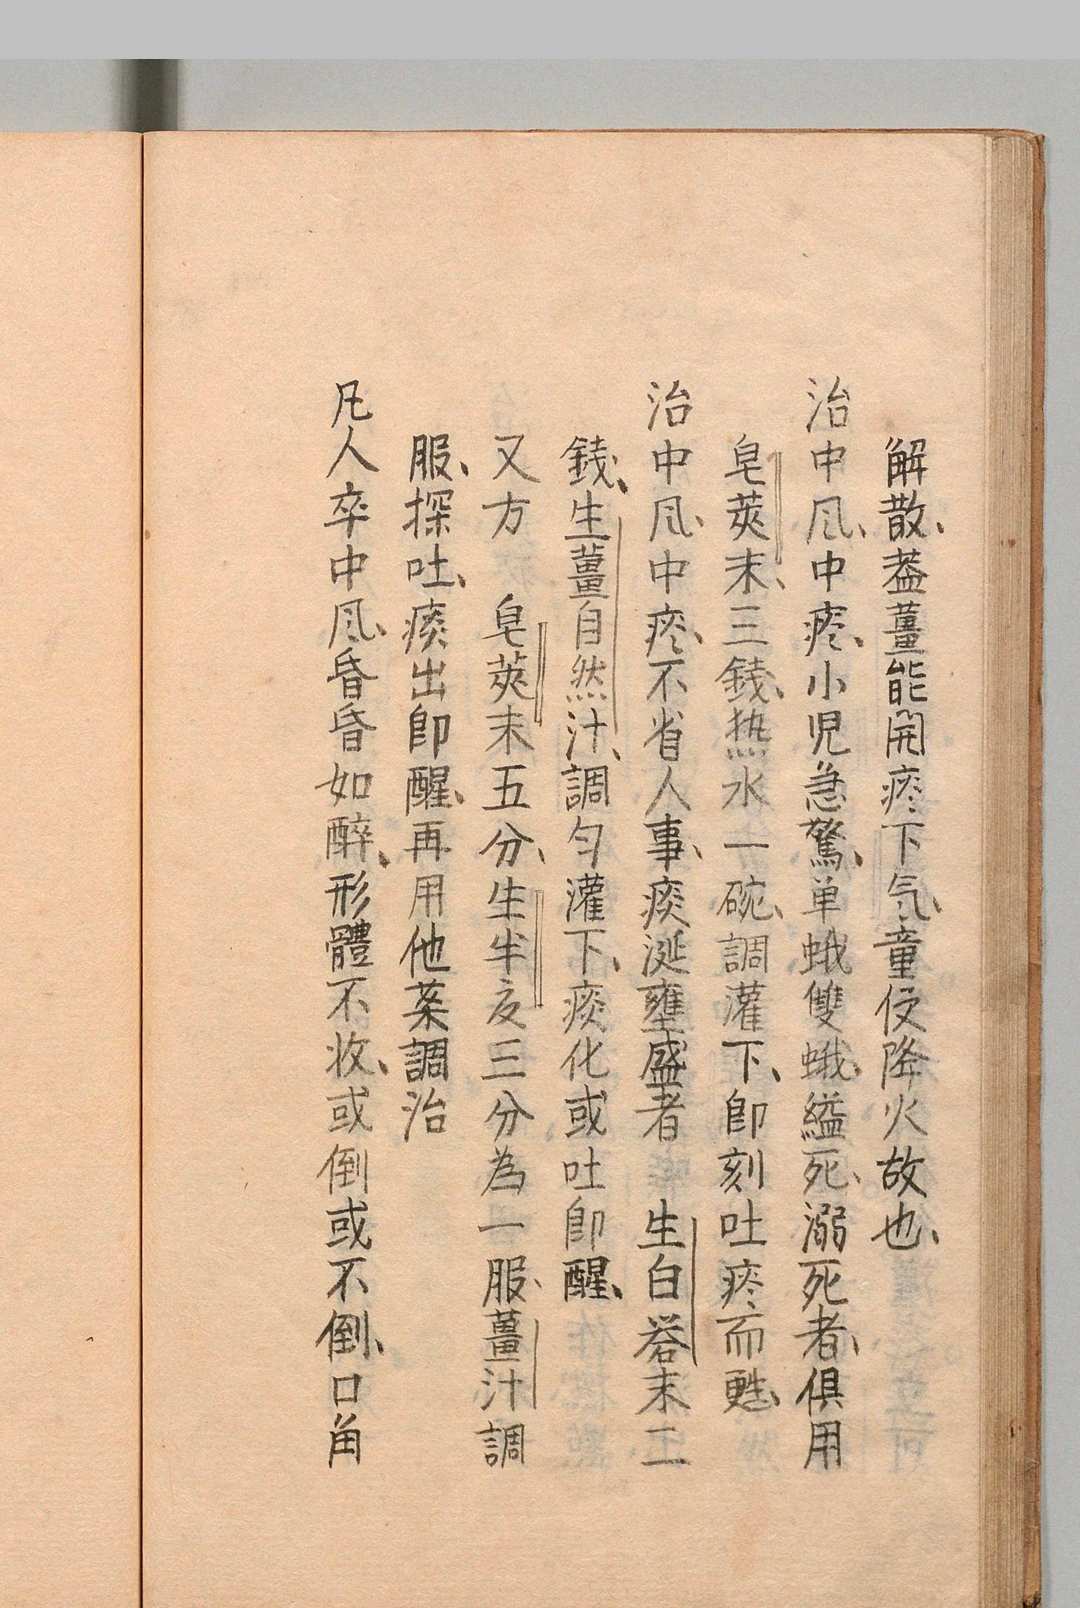 解散、葢薑能開痰下气、童便降火故也、
治中风、中痰、小児急驚、单蛾雙蛾、縊死、溺死者、俱用
皂莢末、三錢、热水一碗、調灌下、即刻吐痰而甦、
治中风、中痰、不省人事、痰涎壅盛者　生白礬末二
錢、生薑自然汁、調匀灌下、痰化或吐即醒、
又方　皂莢末五分、生半夏三分為一服、薑汁調
服、探吐、痰出即醒、再用他薬調治
凡人卒中风、昏昏如醉、形體不收、或倒或不倒、口角